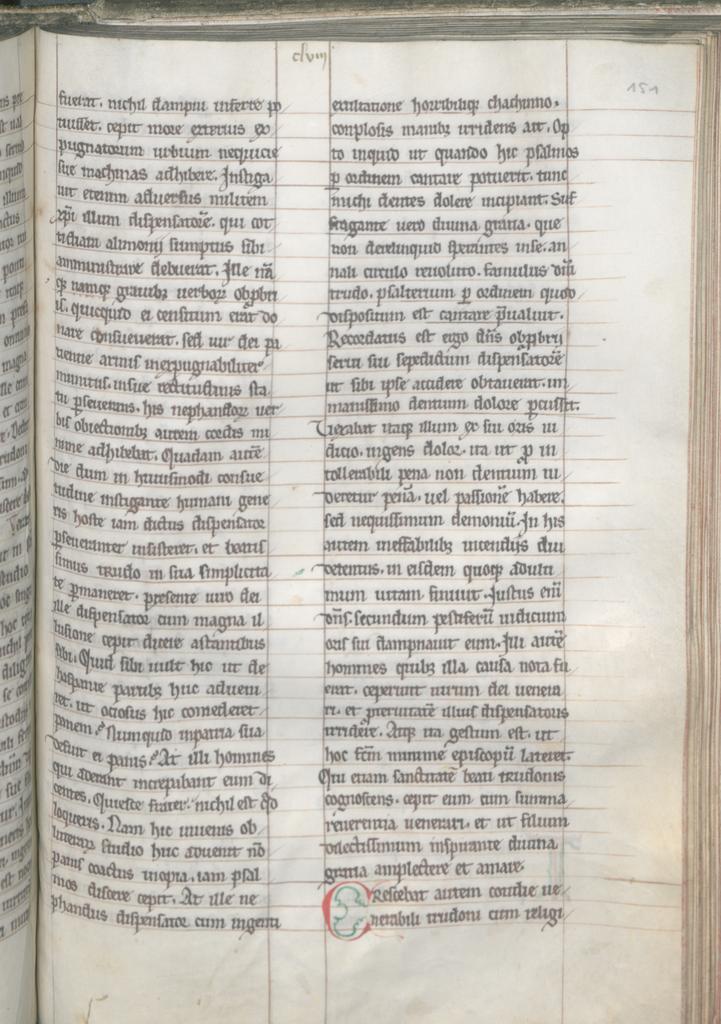 clviij
151
fuerat. nichil dampni inferre po
tuisset. cepit more exercitus ex
pugnatorum urbium nequicie
sue machinas adhibere. Instiga
uit etenim aduersus militem
xp̄i illum dispensatorē. qui cot
tidiani alimonij sumptus sibi
amministrare debuerat. Ille
namq; grauibꝫ uerborꝝ obp̄bri
is. quicquid ei censitum erat do
nare consueuerat. sed uir dei pa
tientie armis inexpugnabiliter
munitus. insue rectitudinis sta
tu ꝑseuerans. his nephandorꝝ uer
bis obiectionibꝫ aurem cordis mi
nime adhibebat. Quadam autē
die dum in huiusmodi consue
tudine instigante humani gene
ris hoste iam dictus dispensator
ꝑseueranter insisteret. et beatis
simus trudo in sua simplicita
te ꝑmaneret. presente uiro dei
ille dispensator cum magna il
lusione cepit dicere astantibus
sibi. Quid sibi uult hic ut de
haspanie partibꝫ huc adueni
ret. ut ociosus hic comederet
panem? Nunquid inpatria sua
defuit ei panis? At illi homines
qui aderant increpabant eum di
centes. Quiesce frater. nichil est qd̄
loqueris. Nam hic iuuenis ob
litterarꝝ studio huc aduenit nō
panis coactus inopia. iam psal
mos discere cepit. At ille ne
phandus dispensator cum ingenti
exultatione horribiliqꝫ chachinno.
conplosis manibꝫ irridens ait. Op
to inquid ut quando hic psalmos
ꝑ ordinem cantare potuerit. tunc
michi dentes dolere incipiant. Suf
fragante uero diuina gratia. que
non derelinquid sperantes inse. an
nali circulo reuoluto. famulus dn̄i
trudo. psalterium ꝑ ordinem quod
dispositum est cantare p̄ualuit.
Recordatus est ergo dn̄s obp̄brij
serui sui sepedictum dispensatorē
ut sibi ipse accidere obtauerat. in
manissimo dentium dolore ꝑcussit.
Vexabat itaqꝫ illum ex sui oris iu
dicio. ingens dolor. ita ut p̄ in
tollerabili pena non dentium ui
deretur penā. uel passionē habere.
sed nequissimum demoniū. In his
autem ineffabilibꝫ incendijs diu
detentus. in eisdem quoqꝫ adulti
mum uitam finiuit. Justus eni̅
dn̄s. secundum pestiferū iudicium
oris sui dampnauit eum. Illi autē
homines quibꝫ illa causa nota fu
erat. ceperunt uirum dei uenera
ri. et prauitatē illius dispensatoris
irridere. Atqꝫ ita gestum est. ut
hoc fc̄m minime episcopū lateret.
Qui etiam sanctitatē beati trudonis
cognoscens. cepit eum cum summa
reuerentia uenerari. et ut filium
dilectissimum inspirante diuina
gratia amplectere et amare.
Crescebat autem cotidie ue
nerabili trudoni cum religi